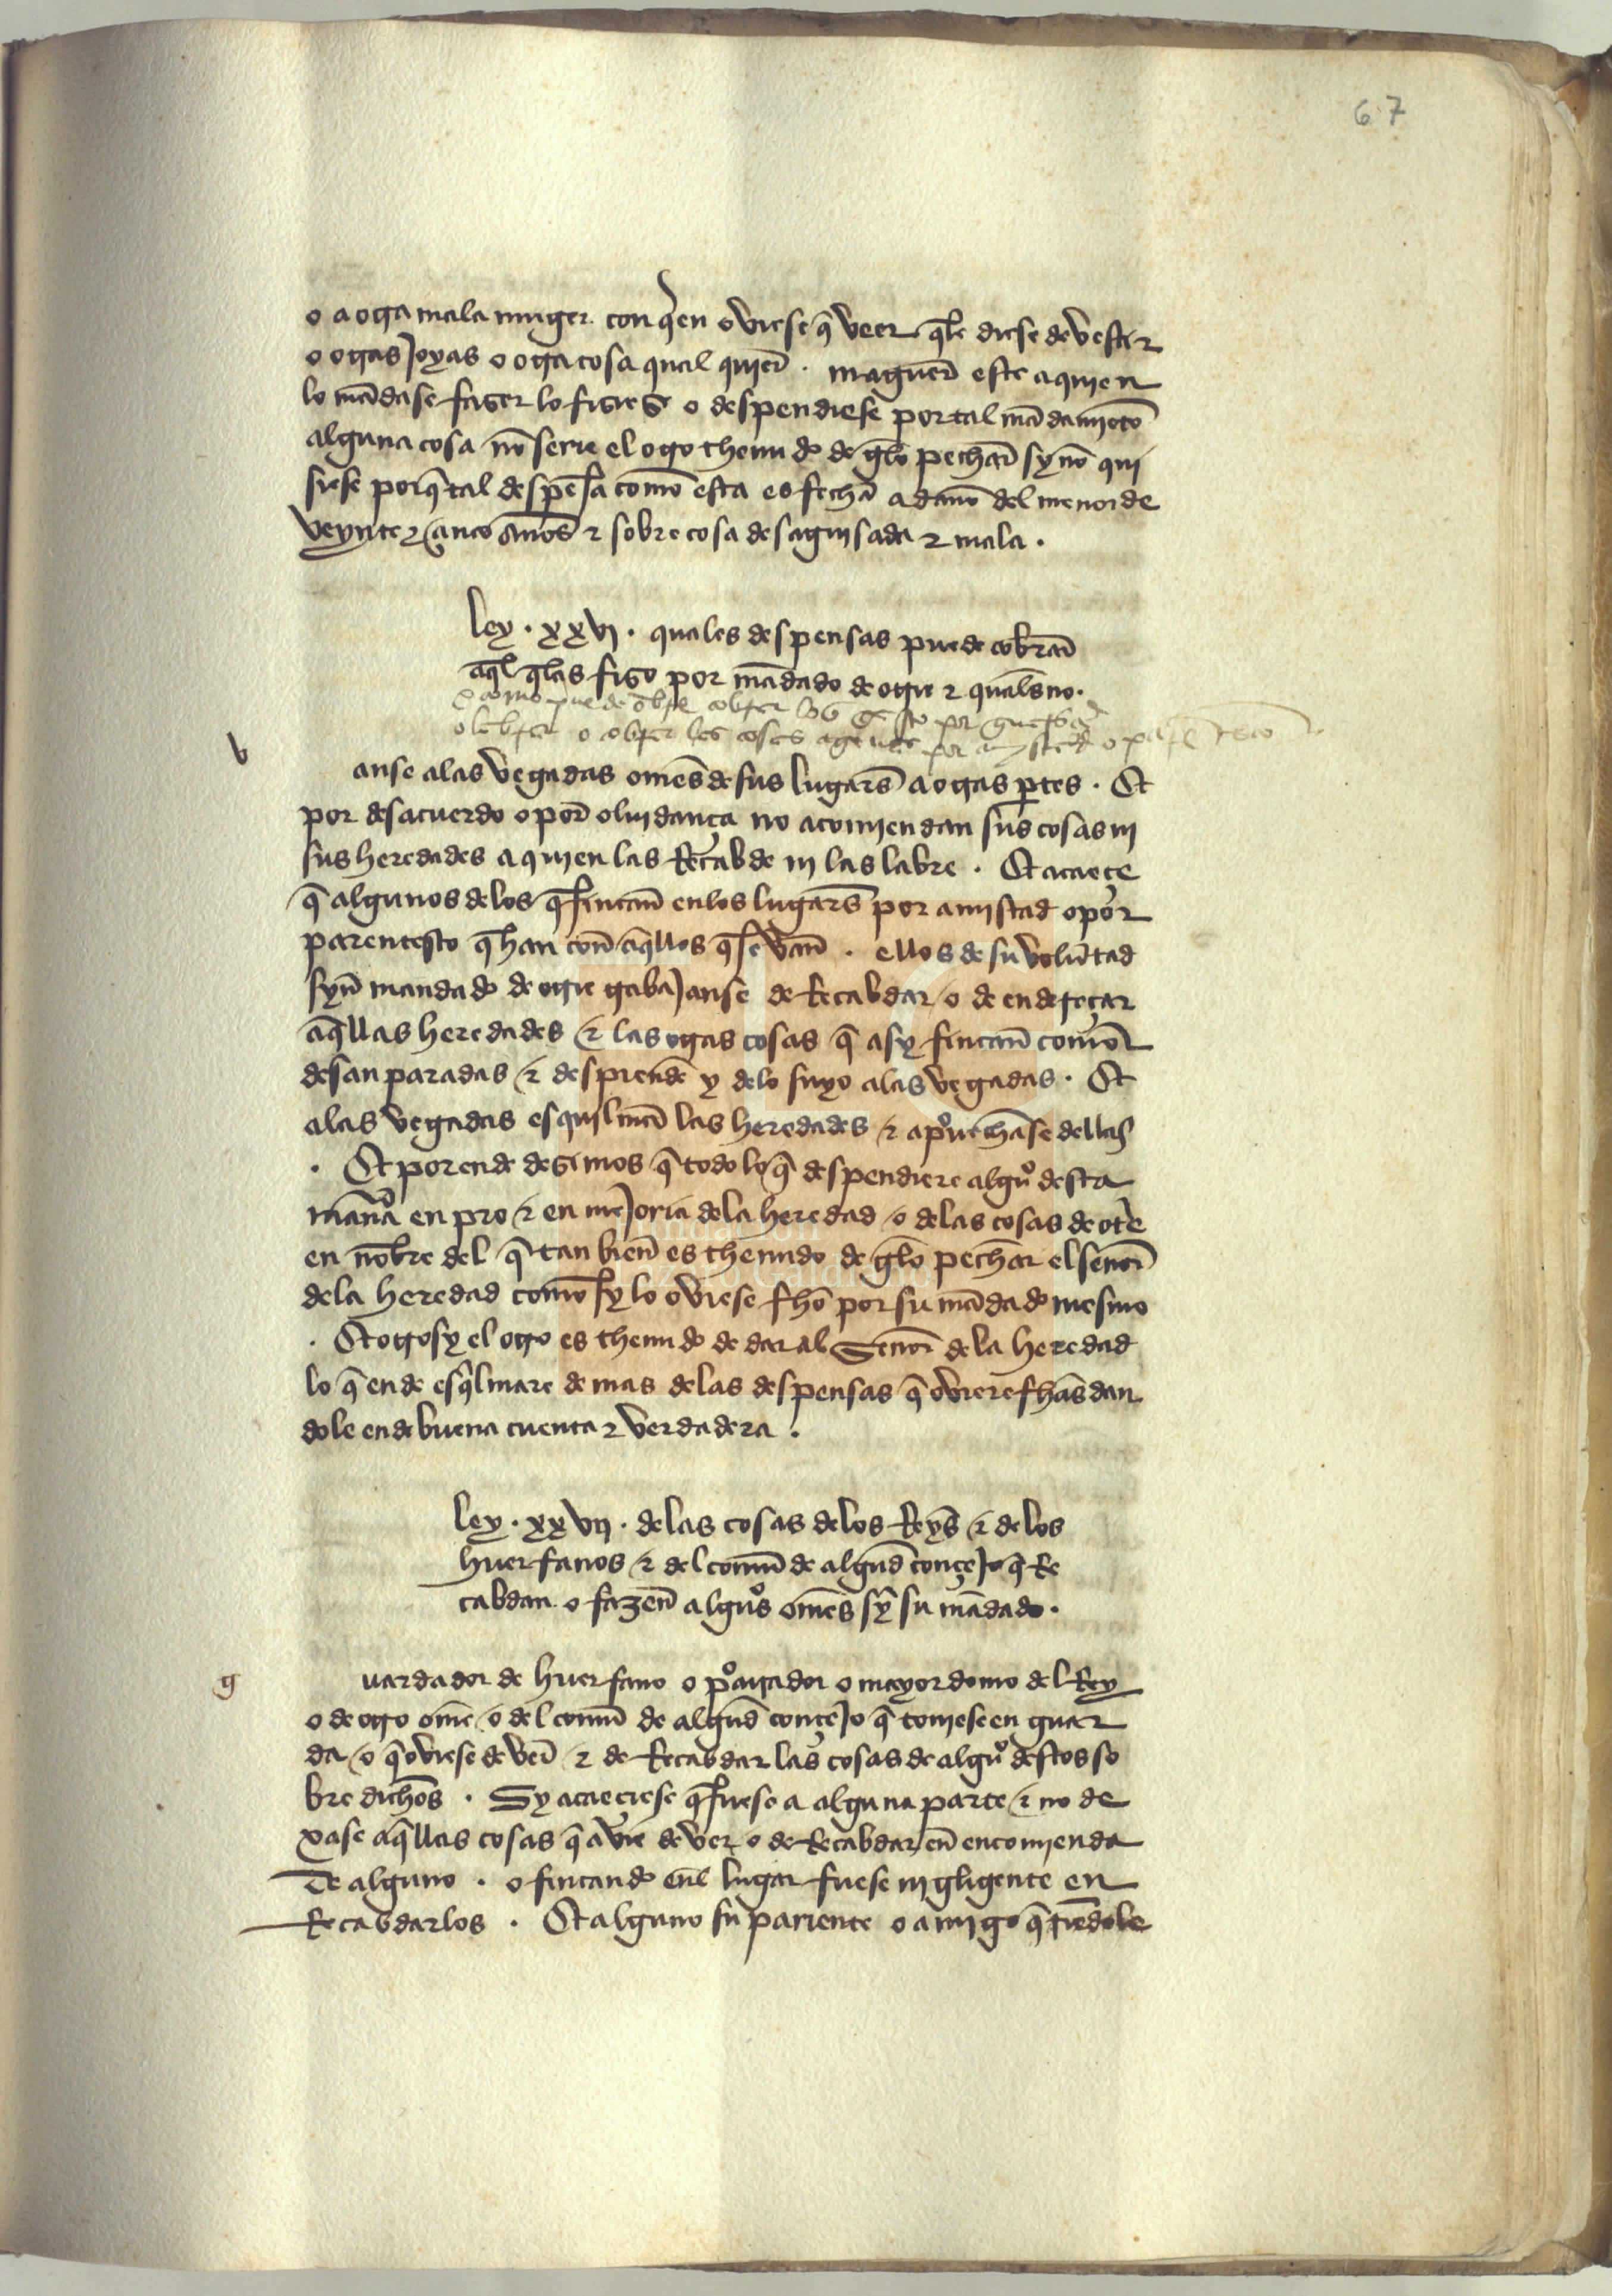 67
o a otra mala muger con quien oviese q̄ veer q̄le diese de vestir
o otras joyas o otra cosa qual quier̄ . maguer̄ este a quien
lo mādase faser lo fisies o despendiese por tal mādamieto
alguna cosa nō serie el otro thenudo de gelo pechar̄ sy nō qui
siese porq̄ tal despēsa comō esta es fecha a danō del menor de
veynte ⁊ çinco años ⁊ sobre cosa desaguisada ⁊ mala .
Ley . xxvj . quales despensas puede cobrar̄
aq̄l q̄ las fiso por mādado de otrie ⁊ quales no .
v
anse alas vegadas omēs de sus lugares̄ a otras ꝑtes . Et
por desacuerdo o por olvidança no acomiendan sus cosas ni
sus heredades a quien las Recabde ni las labre . Et acaeçe
q̄ algunos delos q̄ fincan̄ enlos lugares̄ por amistad o por
parentesco q̄ han con̄ aq̄llos q̄ se van̄ . ellos de su volūtad
syn̄ mandado de otrie trabajanse de Recabdar o de endereçar
aq̄llas heredades ⁊ las otras cosas q̄ asy fincan̄ comō
desanparadas ⁊ despienden̄ y delo suyo alas vegadas . Et
alas vegadas esquilmā las heredades ⁊ aprouechāse dellas
. Et porende desimos q̄ todo lo q̄ despendiere algūo desta
manā en pro ⁊ en mejoria dela heredad o delas cosas de otrē
en nōbre del q̄ tan bien̄ es thenudo de gelo pechar el señor̄
dela heredad comō sy lo oviese fhō por su mādado mesmo
. Et otrosy el otro es thenudo de dar al Señor̄ dela heredad
lo q̄ ende esq̄lmare de mas delas despensas q̄ oviere fhās dan
dole ende buena cuenta ⁊ verdadera .
Ley . xxvij . delas cosas delos Reyēs ⁊ delos
huerfanos ⁊ del comū de algund̄ conçejo q̄ Re
cabdan o fazen̄ algūos omēs sȳ su mādado .
g
uardador de huerfano o procurador o mayordomo del Rey
o de otro omē o del comū de algūd conçejo q̄ tomese en guar
da o q̄ oviese de ver̄ ⁊ de Recabdar las cosas de algūo destos so
bre dichos̄ . Sy acaeciese q̄ fuese a alguna parte ⁊ no de
xase aq̄llas cosas q̄ avie de ver o de Recabdar en̄ encomienda
De alguno . o fincando enl̄ lugar fuese nigligente en
Recabdarlos . Et alguno su pariente o amigo q̄riēdole